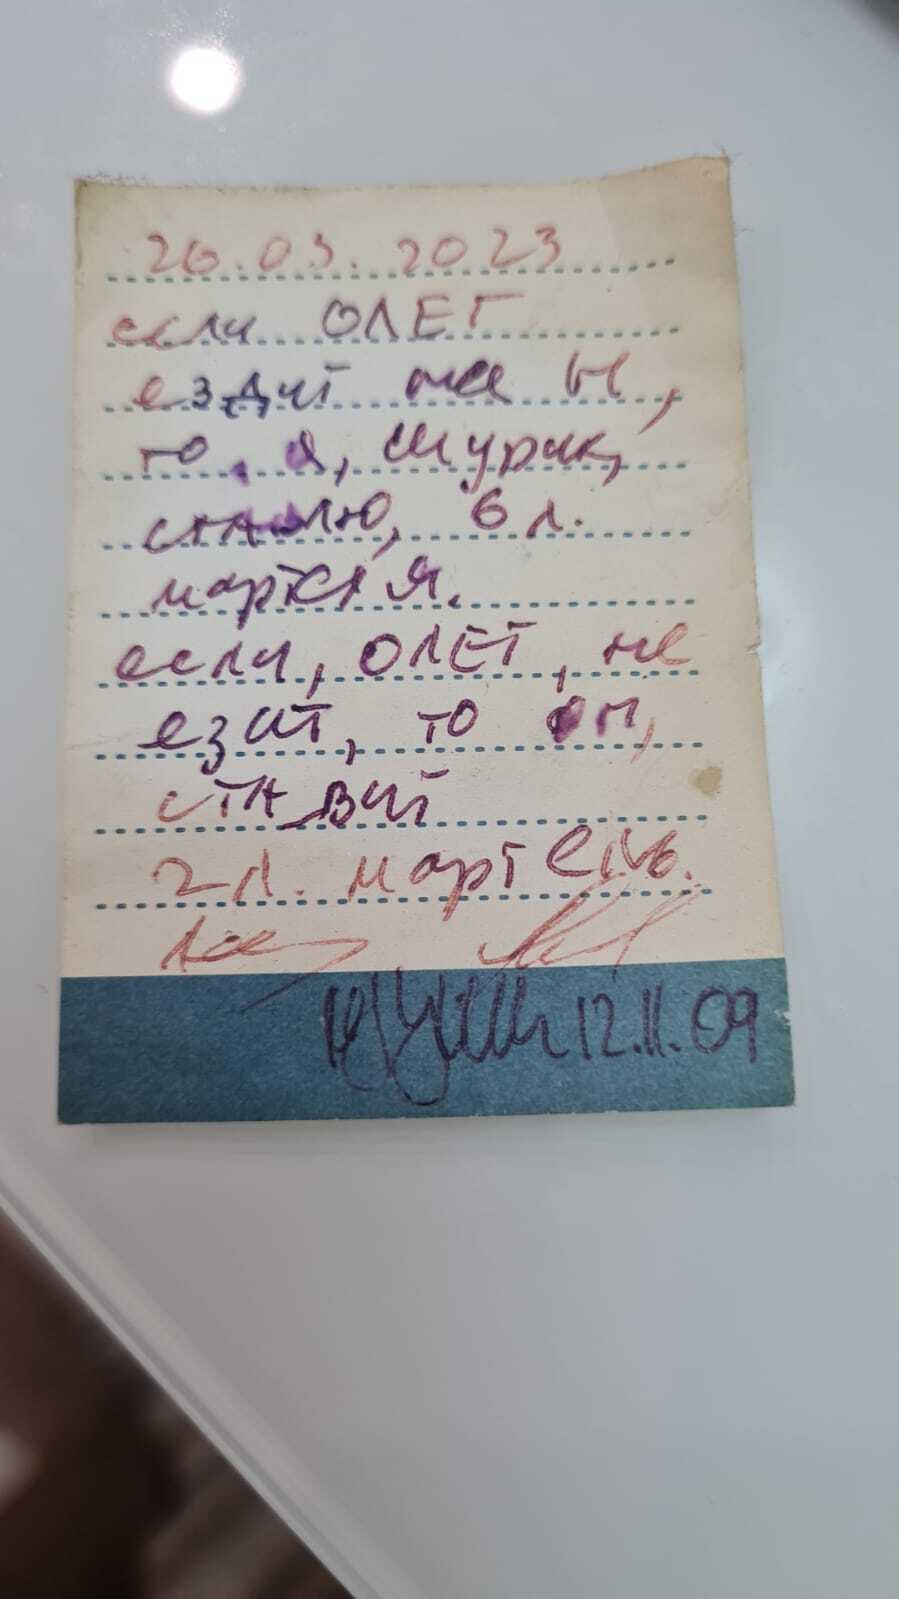 26.03.2023
если ОЛЕГ
ездит
то я, Шурик,
ставлю, 6 л.
если, ОЛЕГ, не
езит, то он,
ставит
2 л. мартель.
12.11.09